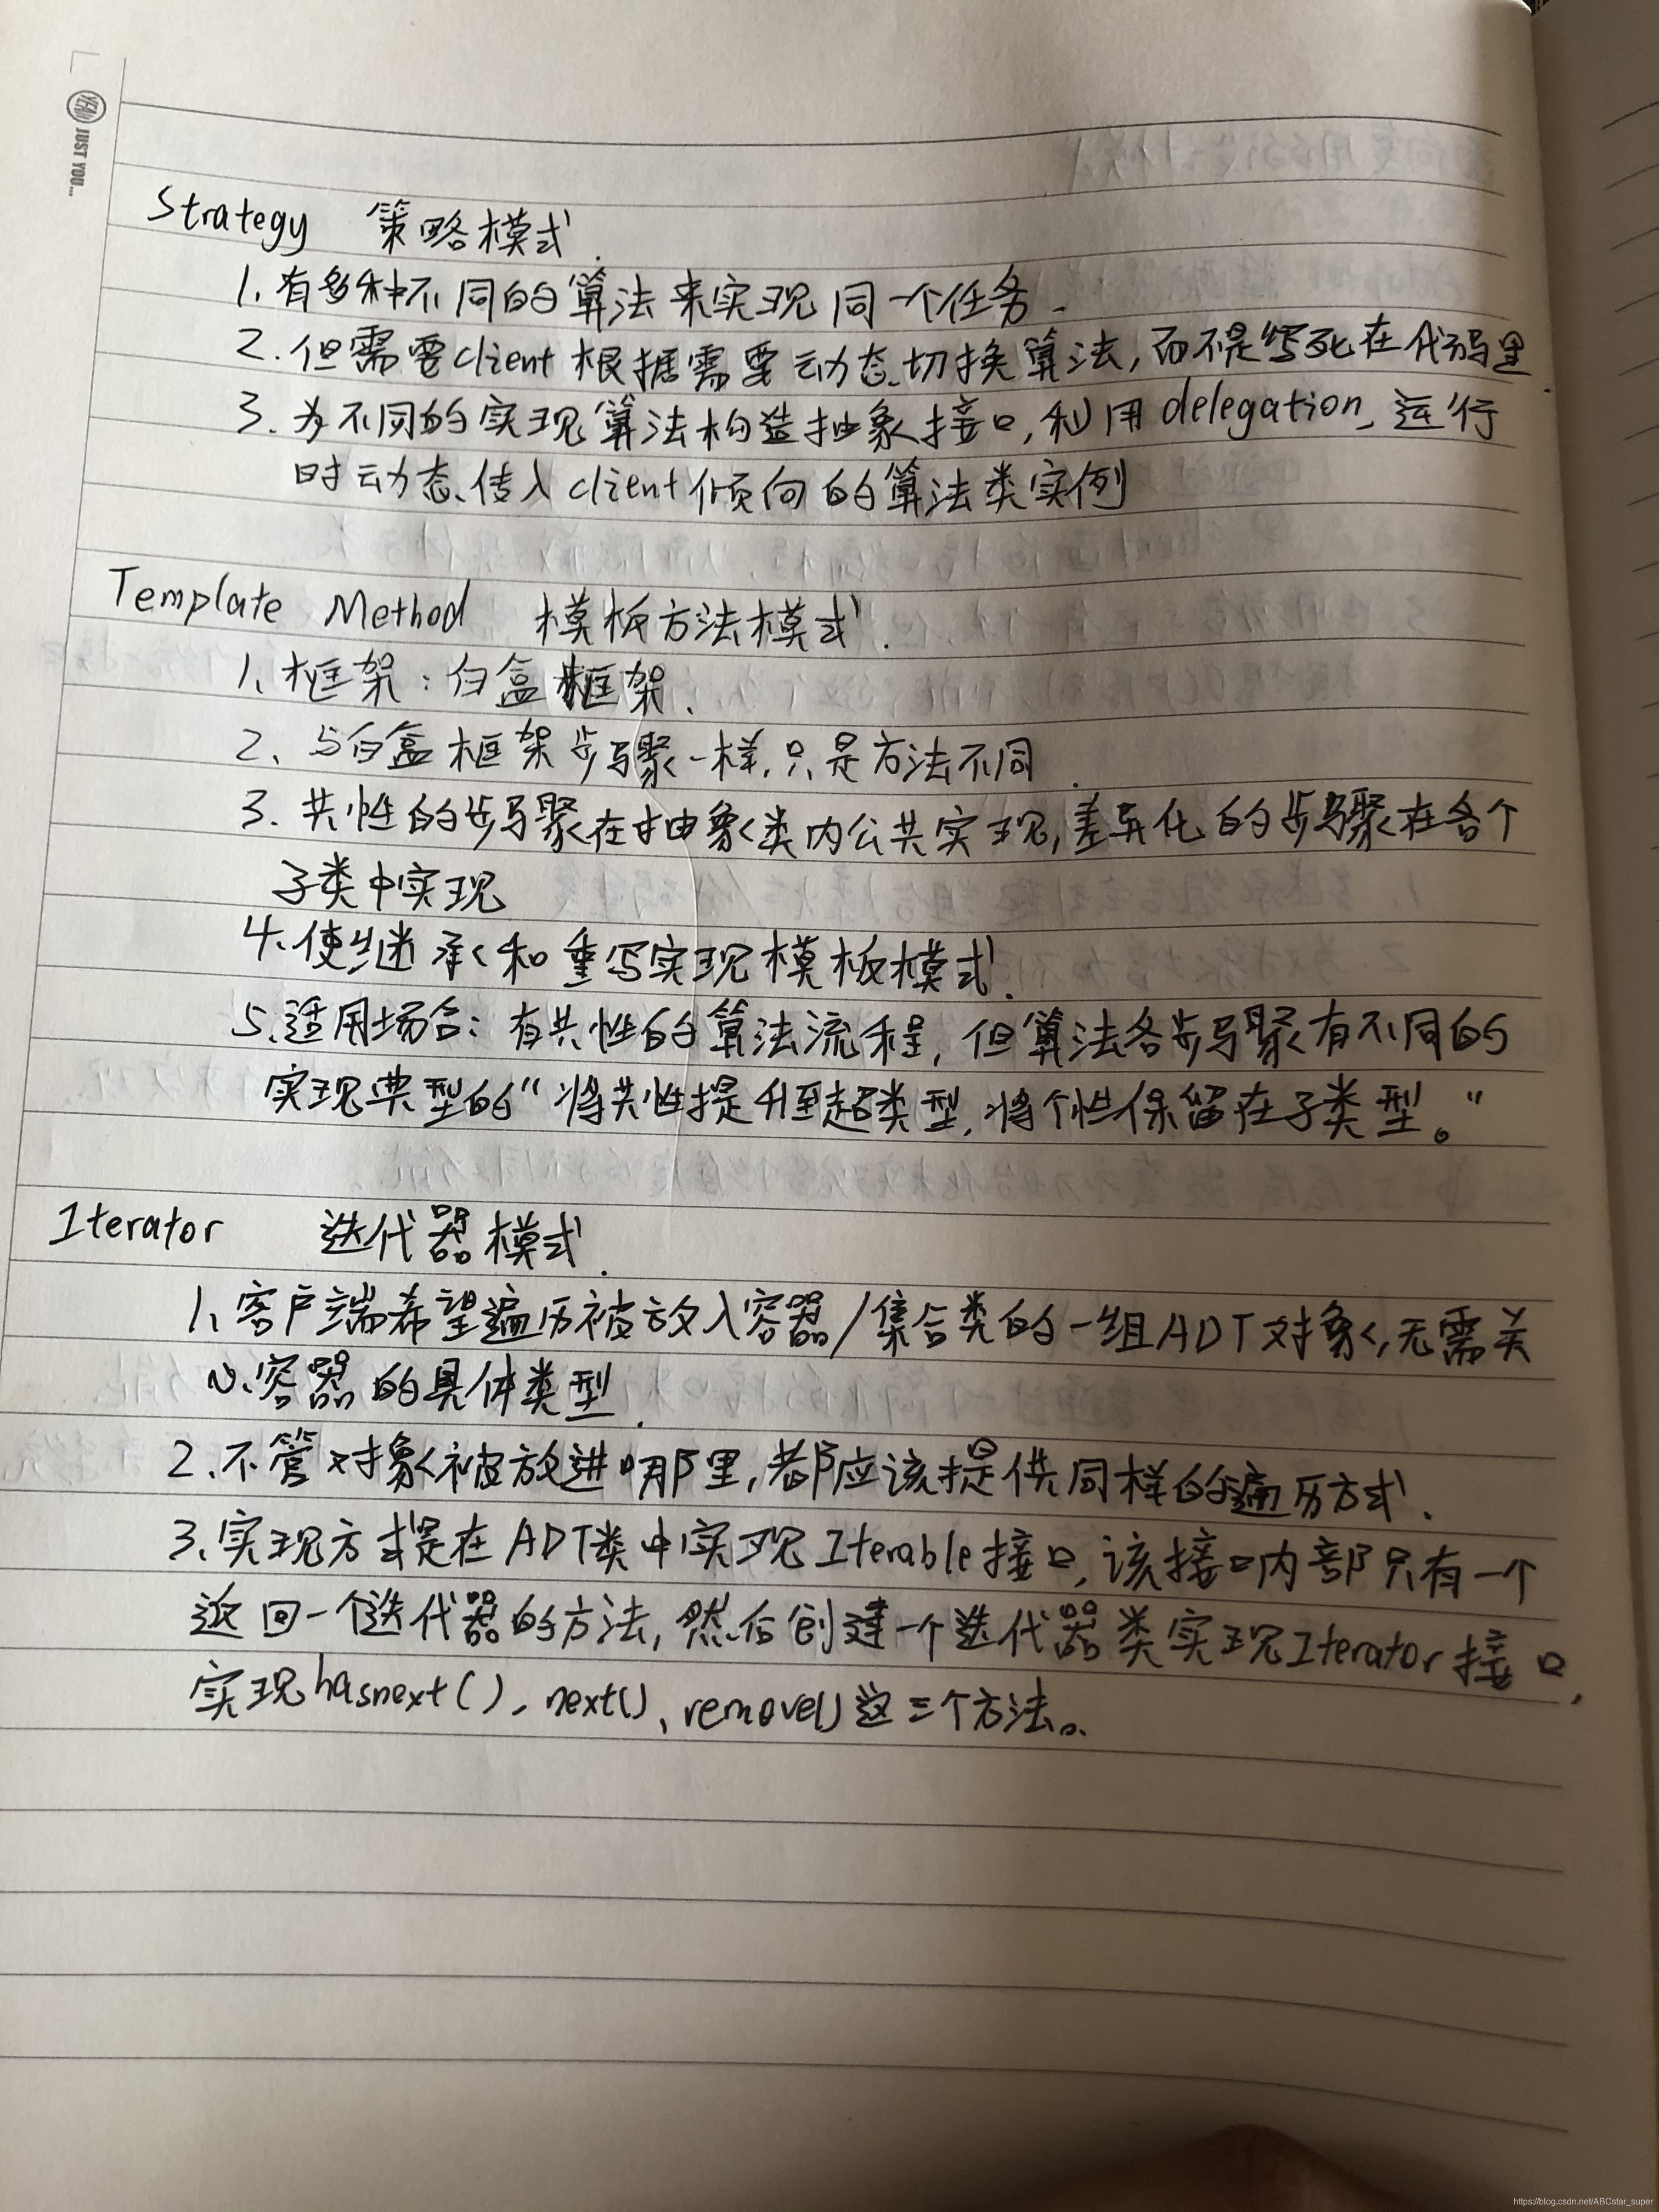 YEAH JUST YOU...
Strategy 策略模式.
1、有多种不同的算法来实现同一个任务.
2.但需要client根据需要动态切换算法,而不是写死在代码里.
3.为不同的实现算法构造抽象接口,利用delegation,运行
时动态传入client倾向的算法类实例
Template Method 模板方法模式.
1、框架:白盒框架.
2、与白盒框架步骤一样,只是方法不同.
3.共性的步骤在抽象类内公共实现,差异化的步骤在各个
子类中实现
4.使继承和重写实现模板模式.
5.适用场合:有共性的算法流程,但算法各步骤有不同的
实现典型的“将共性提升至超类型,将个性保留在子类型。”
Iterator 迭代器模式.
1、客户端希望遍历被放入容器/集合类的一组ADT对象,无需关
心容器的具体类型.
2、不管对象被放进哪里,都应该提供同样的遍历方式.
3、实现方式是在ADT类中实现Iterable接口,该接口内部只有一个
返回一个迭代器的方法,然后创建一个迭代器类实现Iterator接口,
实现hasnext()、next()、remove()这三个方法。
https://blog.csdn.net/ABCstar_super